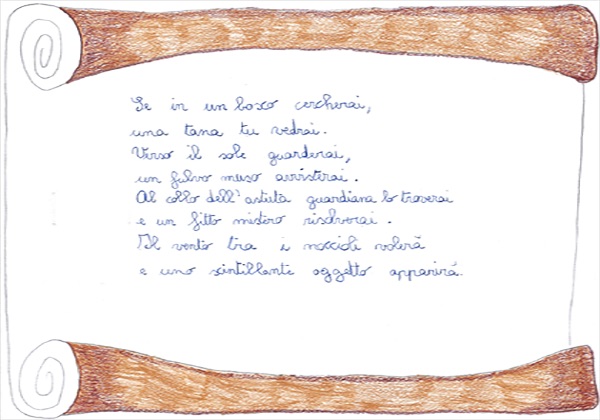 Se in un bosco cercherai,
una tana tu vedrai.
Verso il sole guarderai,
un fulvo muso avvisterai.
Al collo dell'astuta guardiana lo troverai
e un fitto mistero risolverai.
Il vento tra i noccioli volerà
e uno scintillante oggetto apparirà.